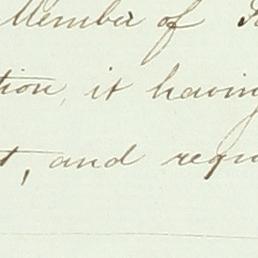 Member of
tion, it having
t, and requ